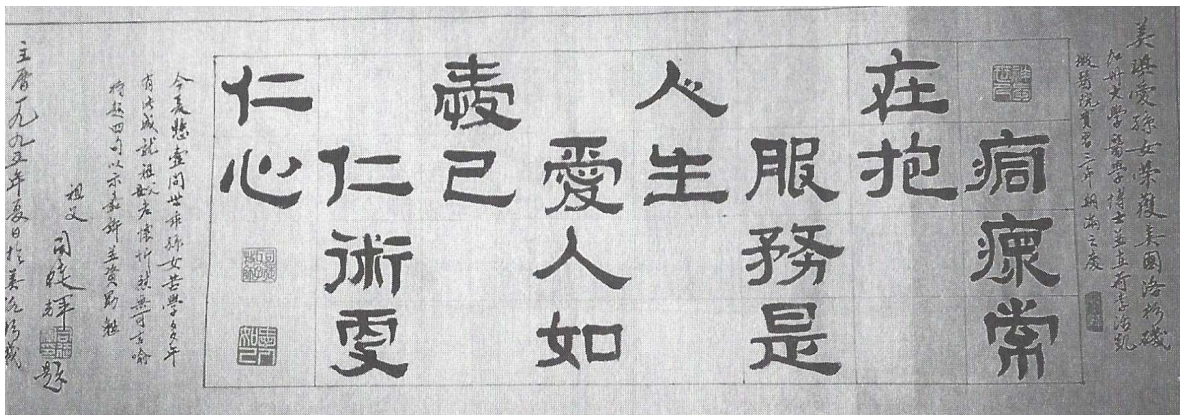 美琪愛孫女榮獲美國洛杉磯
加州大學醫學博士並在
醫院實習三年期滿之慶
痌瘝常
在抱
服務是
人生
愛人如
愛己
仁術更
仁心
今夏懸壺問世乖孫女苦學多年
有此成就祖老懷忻慰無可言喻
特題四句以示嘉許並資勗勉
祖父 司徒輝 題
主曆一九九五年夏日於美洛杉磯